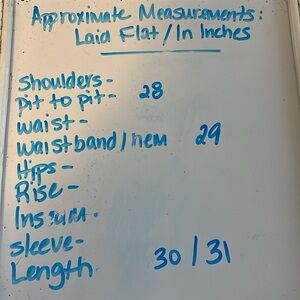 Approximate Measurements:
Laid Flat/In Inches
Shoulders-
Pit to pit- 28
waist-
waistband/hem 29
Hips-
Rise-
Inseam-
sleeve-
Length 30/31